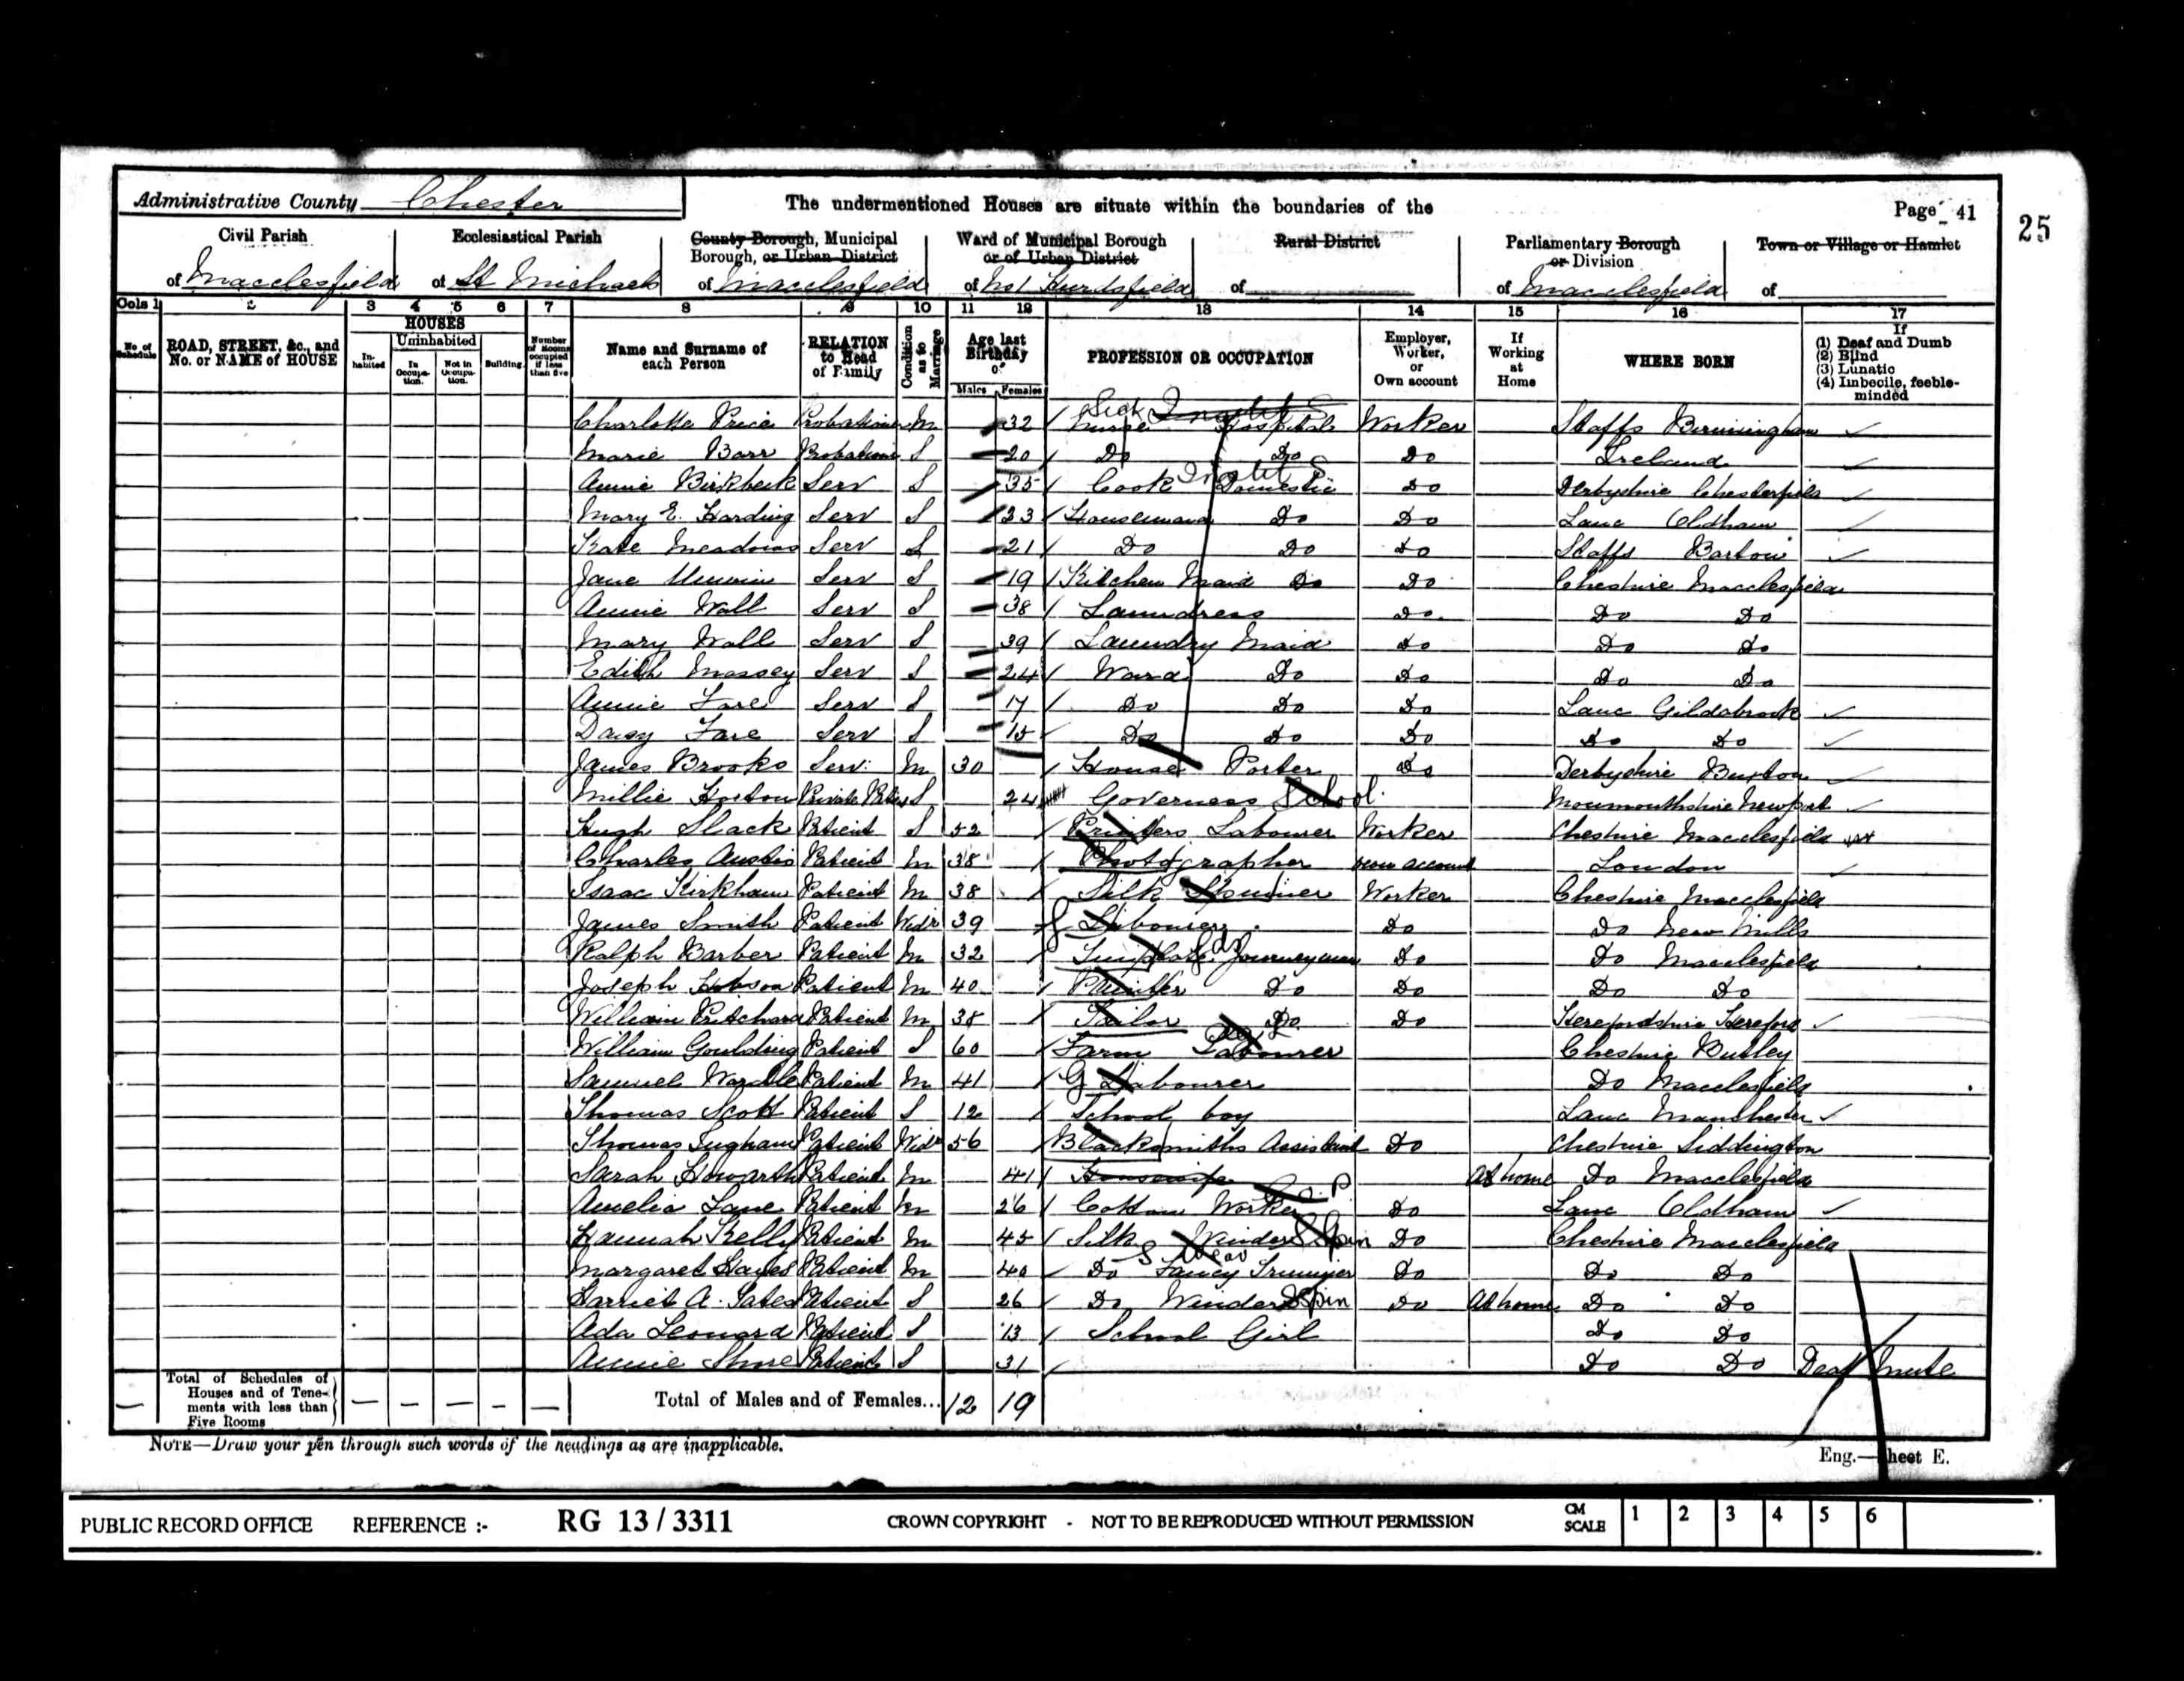 Administrative County Chester
The undermentioned Houses are situate within the boundaries of the
Page 41
25
Civil Parish
of Macclesfield
Ecclesiastical Parish
of St Michaels
County Borough, Municipal
Borough, or Urban District
of Macclesfield
Ward of Municipal Borough
or of Urban District
of No 1 Hurdsfield
Rural District
of
Parliamentary Borough
or Division
of Macclesfield
Town or Village or Hamlet
of
Cols 1 2 3 4 5 6 7 8 9 10 11 12 13 14 15 16 17
No. of Schedule
ROAD, STREET, &c., and No. or NAME of HOUSE
HOUSES
Inhabited
Uninhabited
In Occupation.
Not in Occupation.
Building
Number of Rooms occupied if less than five
Name and Surname of each Person
RELATION to Head of Family
Condition as to Marriage
Age last Birthday of
Males Females
PROFESSION OR OCCUPATION
Employer, Worker, or Own account
If Working at Home
WHERE BORN
If
(1) Deaf and Dumb
(2) Blind
(3) Lunatic
(4) Imbecile, feeble-minded
Charlotte Price Probationer M 32 Sick Nurse Hospital Worker Staffs Birmingham
Marie Barr Probationer S 20 Do Do Do Ireland
Annie Birkbeck Serv S 35 Cook Domestic Do Derbyshire Chesterfield
Mary E. Harding Serv S 33 Housemaid Do Do Lanc Oldham
Kate Meadows Serv S 21 Do Do Do Staffs Barton
Jane Unwin Serv S 19 Kitchen Maid Do Do Cheshire Macclesfield
Annie Wall Serv S 38 Laundress Do. Do Do
Mary Wall Serv S 39 Laundry Maid Do Do Do
Edith Massey Serv S 24 Ward Do Do Do Do
Annie Fare Serv S 17 Do Do Do Lanc
Daisy Fare Serv S 15 Do Do Do Do Do
James Brooks Serv: M 30 House Porter Do Derbyshire Buxton
Millie Horton Private Patient S 24 Governess School. Monmouthshire Newport
Hugh Slack Patient S 52 Printers Labourer Worker Cheshire Macclesfield
Charles Austin Patient M 38 Photographer own account London
Isaac Kirkham Patient M 38 Silk Spinner Worker Cheshire Macclesfield
James Smith Patient Widr 39 G Labourer Do Do New Mills
Ralph Barber Patient M 32 Journeyman Do Do Macclesfield
Joseph Hobson Patient M 40 Painter Do Do Do Do
William Pritchard Patient M 38 Tailor Do Do Herefordshire Hereford
William Goulding Patient S 60 Farm Labourer Cheshire Butley
Samuel Wardle Patient M 41 G Labourer Do Macclesfield
Thomas Scott Patient S 12 School boy Lanc Manchester
Thomas Ingham Patient Widr 56 Blacksmiths Assistant Do Cheshire Siddington
Sarah Howarth Patient M 41 Housewife At home Do Macclesfield
Amelia Lane Patient M 26 Cotton Worker Do Lanc Oldham
Hannah Kelly Patient M 45 Silk Winder Spin Do Cheshire Macclesfield
Margaret Hayes Patient M 40 Do Fancy Trimmer Do Do Do
Harriet A. Yates Patient S 26 Do Winder Spin Do At home Do Do
Ada Leonard Patient S 13 School Girl Do Do
Annie Shore Patient S 31 Do Do Deaf Mute
Total of Schedules of Houses and of Tenements with less than Five Rooms
Total of Males and of Females... 12 19
NOTE—Draw your pen through such words of the headings as are inapplicable.
Eng.—Sheet E.
PUBLIC RECORD OFFICE REFERENCE :- RG 13 / 3311 CROWN COPYRIGHT - NOT TO BE REPRODUCED WITHOUT PERMISSION CM SCALE 1 2 3 4 5 6